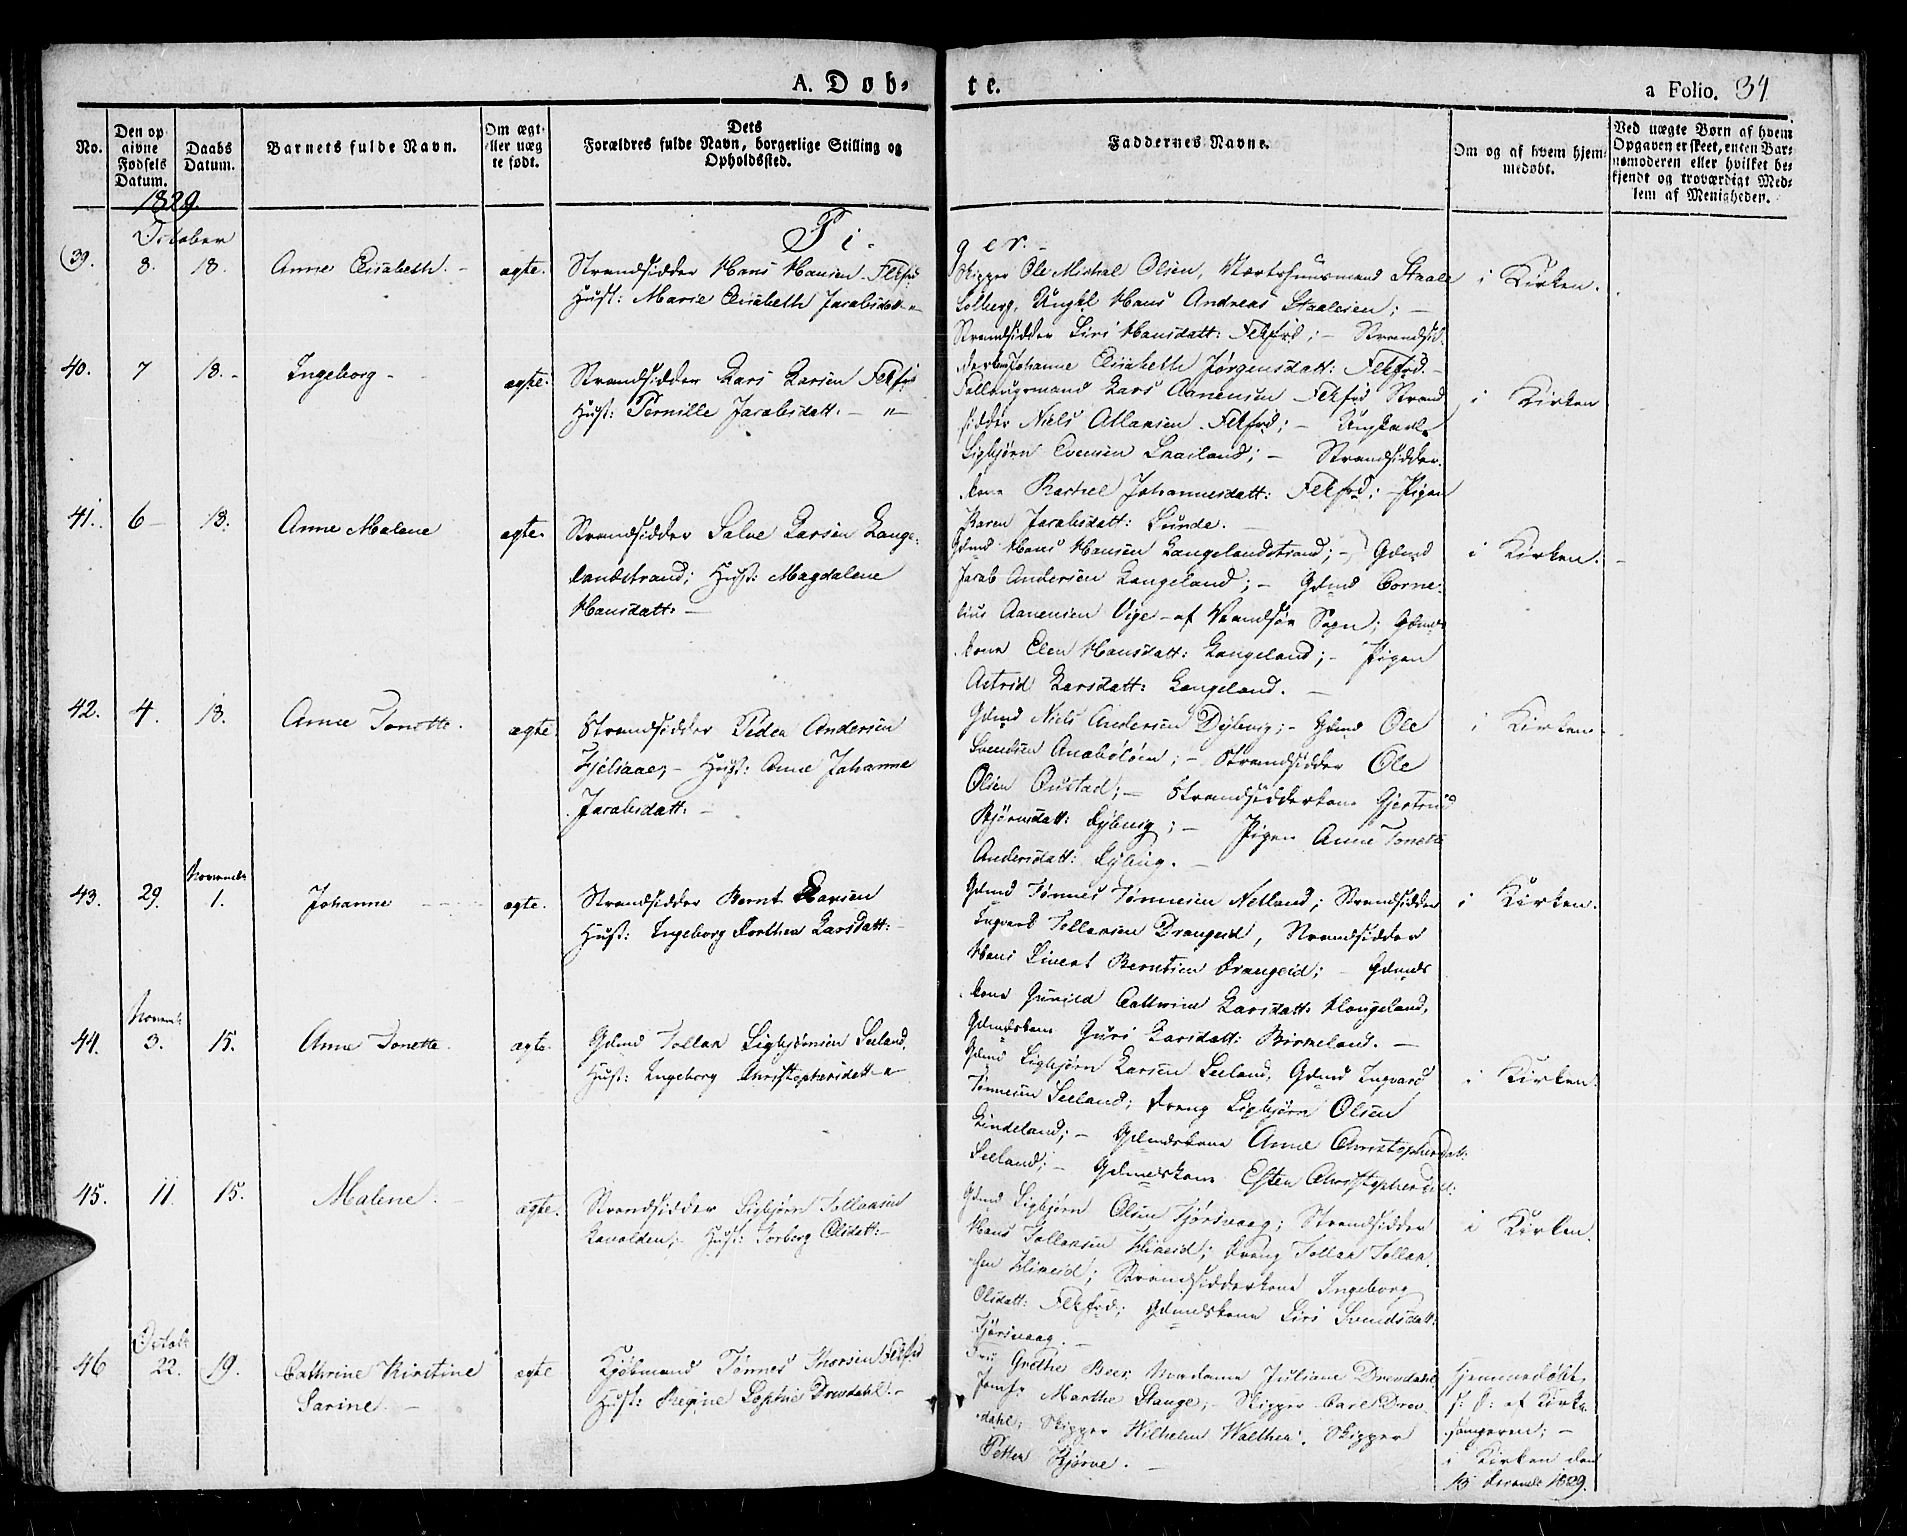 A. Døb-
te.
a Folio. 34
No.
Den op
givne
Fødsels
Datum.
Daabs
Datum.
Barnets fulde Navn.
Om ægt-
eller uæg
te født.
Dets
Forældres fulde Navn, borgerlige Stilling og
Opholdssted.
Faddernes Navne.
Om og af hvem hjem-
medøbt.
Ved uægte Børn af hvem
Opgaven er skeet, enten Bar-
nemoderen eller hvilket be-
kjendt og troværdigt Med-
lem af Menigheden.
1829.
October
Pi-
ger.
39. 8. 18. Anne Elisabeth. - ægte.
Strandsidder Hans Hansen Flkfrd
Hust: Marie Elisabeth Jacobsdatt -"-
Skipper Ole Michal Olsen, Staale
Solberg, Ungkl Hans Andreas Staalesen; -
Strandsidder Siri Hansdatt: Flkfrd; - Strandsid-
derkone Johanne Elisabeth Jørgensdatt: Flkfrd. -
i Kirken.
40. 7 18. - Ingeborg - ægte.
Strandsidder Lars Larsen Flkfrd
Hust: Pernille Jacobsdatt. - " -
Lars Aanensen Flkfrd Strand
sidder Niels Atlaksen Flkfrd; - Ungkarl
Sigbjørn Evensen; - Strandsidder-
kone Rachel Johannesdatt: Flkfrd; - Pigen
Karen Jacobsdatt: Sunde. -
i Kirken
41. 6 - 18. Anne Malene ægte.
Strandsidder Salve Larsen Lange-
landstrand; Hust: Magdalene
Hansdatt: -
Gdmd Hans Hansen Langelandstrand; - Gdmd
Jacob Andersen Langeland; - Gdmd Corne-
lius Aanensen Vige - af Vandsøe Sogn; Gdmds
kone Elen Hansdatt: Langeland; - Pigen
Astrid Larsdatt: Langeland. -
i Kirken. -
42. 4. 18. Anne Tonette. ægte.
Strandsidder Peder Andersen
Fjelsaae; - Hust: Anne Johanne
Jacobsdatt: -
Gdmd Niels Andersen Dybvig; - Gdmd Ole
Svendsen Anabeløen; - Strandsidder Ole
Olsen Qustad; - Strandsidderkone Gjertrud
Bjørnsdatt: Dybvig; - Pigen Anne Tonette
Andersdatt: Dybvig. -
i Kirken.
Novembr
43. 29. 1. Johanne - - - ægte.
Strandsidder Bernt Larsen
Hust: Ingeborg Dorthea Larsdatt: -
Gdmd Tønnes Tønnesen Netland; Strandsidder
Ingvard Tollaksen Drangeid, Strandsidder
Hans Sivert Berntsen Drangeid; - Gdmds
kone Gunild Cathrine Larsdatt: Hougeland,
Gdmdskone Guri Larsdatt: Birkeland. -
i Kirken.
Novembr
44. 3. 15. Anne Tonette. ægte.
Gdmd Tollak Sigbjørnsen Seeland.
Hust: Ingeborg Christophersdatt -"-
Gdmd Sigbjørn Larsen Seeland, Gdmd Ingvard
Tønnesen Seeland; Dreng Sigbjørn Olsen
Lindeland; - Gdmdskone Anne Christophersdatt:
Seeland; - Gdmdskone Esten Christophersdatt:
i Kirken.
45. 11. 15. Malene. - ægte.
Strandsidder Sigbjørn Tollaksen
Hust: Torborg Olsdatt: -
Gdmd Sigbjørn Olsen Fjørsvaag; Strandsidder
Hans Tollaksen; Dreng Tollak Tollak-
sen; Strandsidderkone Ingeborg
Olsdatt: Flkfrd; Gdmdskone Siri Svendsdatt:
Fjørsvaag. -
i Kirken.
Octobr
46 22. 19. Cathrine Kirstine
Sarine. - ægte
Kjøbmand Tønnes Thorsen Flkfrd
Hust: Regine Sophie Drevdahl. -
Fru Grethe Beer, Madame Juliane Drevdahl,
Jomfr Marthe Stange; - Skipper Carl Drev-
dahl; Skipper Wilhelm Walther. Skipper
Petter Bjørve. -
hjemmedøbt
s: D: af Kirke-
sangeren; -
i Kirken den
13 Decembr 1829.